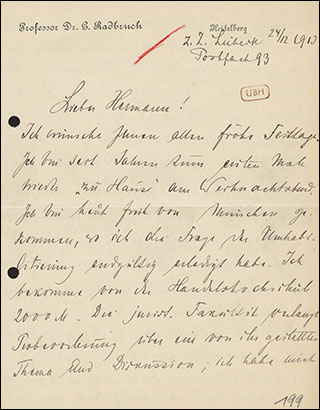 Professor Dr. G. Radbruch
Heidelberg
z. Z. Lübeck 24/12 1913
Postfach 93
UBH
Lieber Hermann!
Ich wünsche Ihnen allen frohe Festtage.
Ich bin seit Jahren zum ersten Mal
wieder "zu Haus" am Weihnachtsabend.
Ich bin heut früh von München ge-
kommen, wo ich die Frage der Umhabi-
litierung endgültig erledigt habe. Ich
bekomme von der Handelshochschule
2000 M. Die jurist. Fakultät verlangt
Probevorlesung über ein von ihr gestelltes
Thema und Diskussion; ich habe mich
199